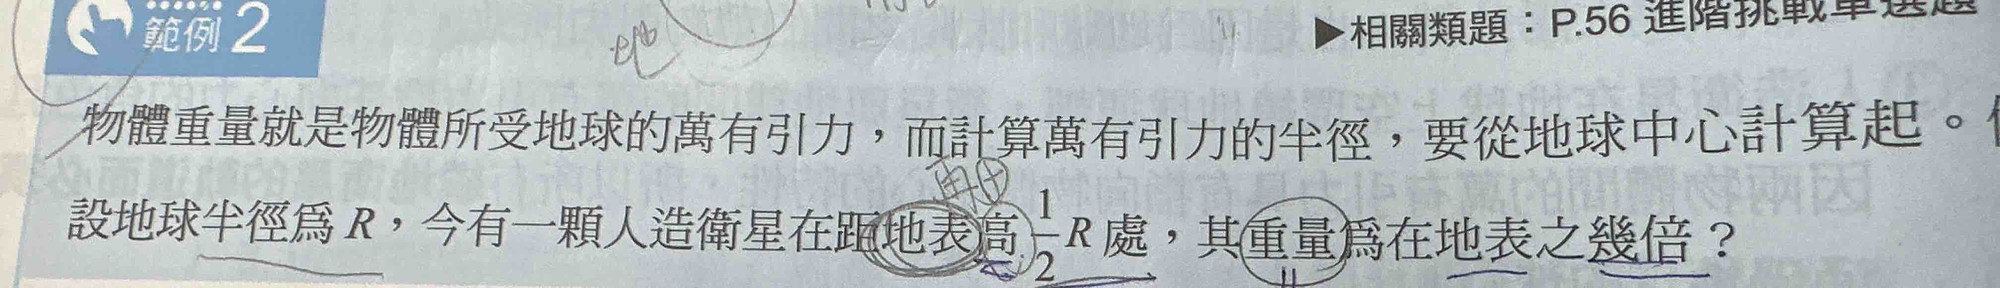 範例 2
地
▶相關類題：P.56 進階挑戰單選題
物體重量就是物體所受地球的萬有引力，而計算萬有引力的半徑，要從地球中心計算起。
再加
設地球半徑為 R，今有一顆人造衛星在距地表高 1/2 R 處，其重量為在地表之幾倍？